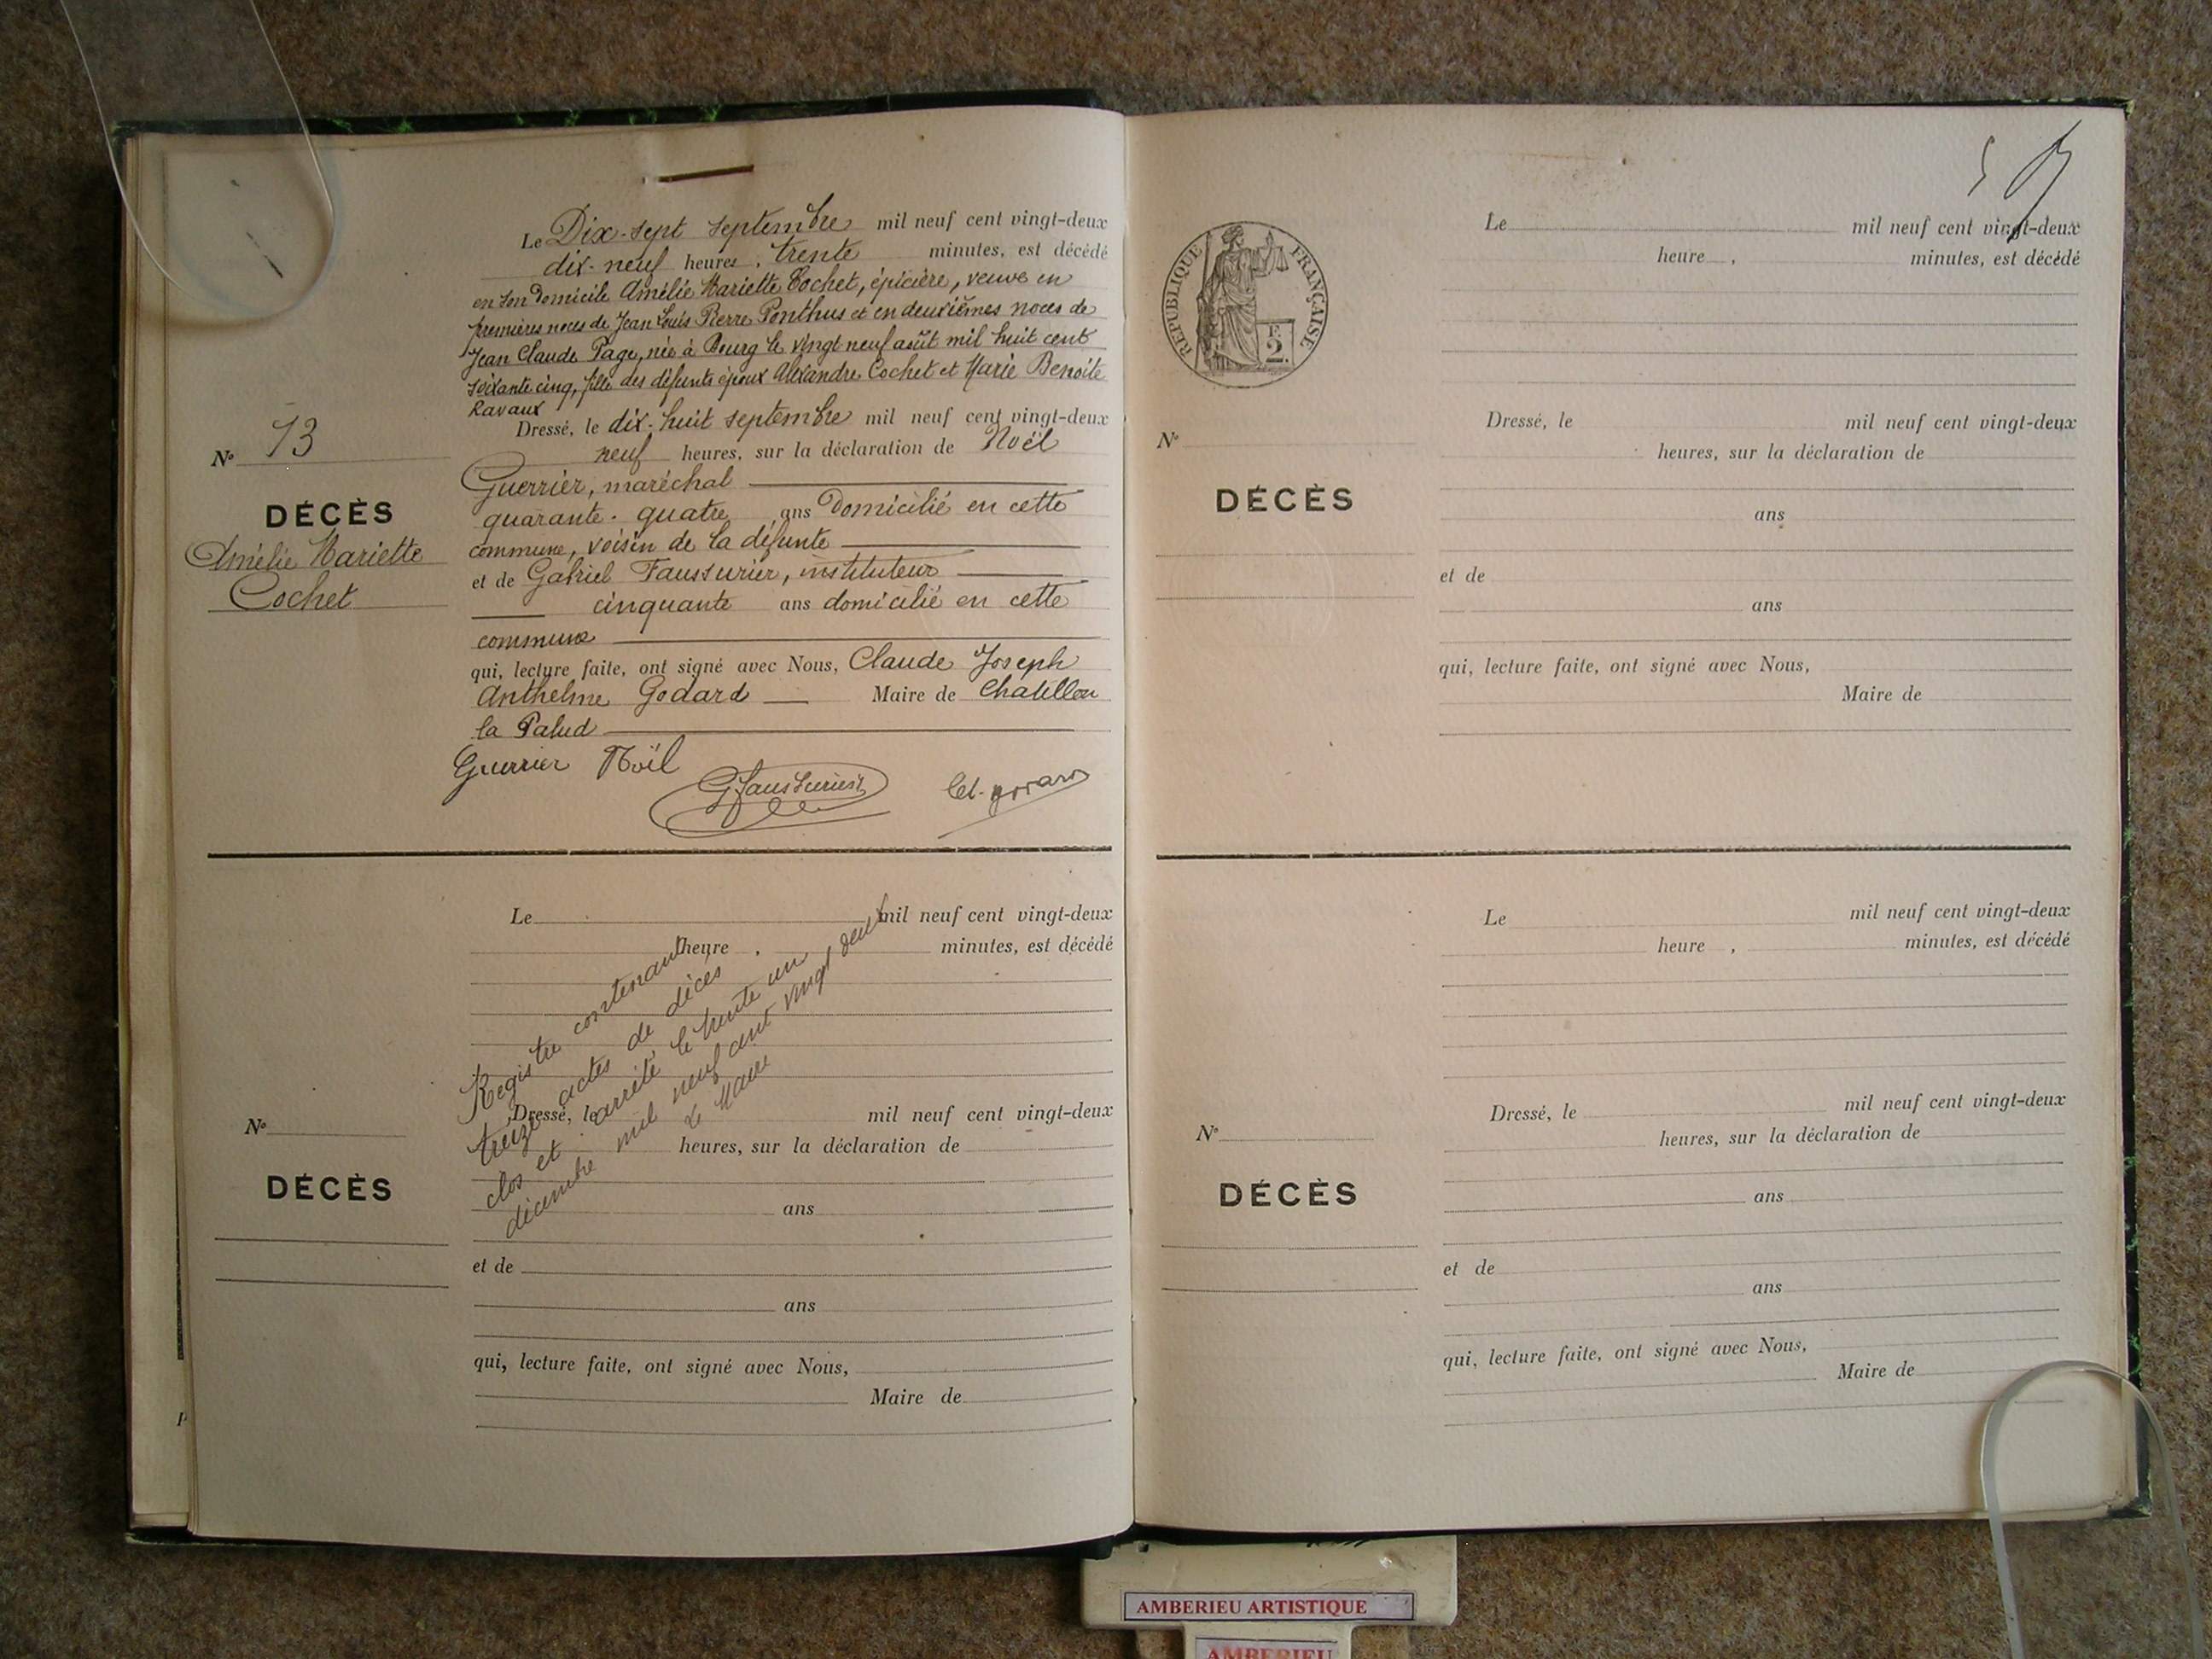 Le Dix-sept septembre mil neuf cent vingt-deux
dix-neuf heures, trente minutes, est décédé
en son domicile Amélie Mariette Cochet, épicière, veuve en
premières noces de Jean Louis Pierre Ponthus et en deuxièmes noces de
Jean Claude Page, née à Bourg le vingt-neuf août mil huit cent
soixante cinq, fille des défunts époux Alexandre Cochet et Marie Benoite
Ravaux
Dressé, le dix-huit septembre mil neuf cent vingt-deux
neuf heures, sur la déclaration de Noël
Guerrier, maréchal
quarante-quatre ans domicilié en cette
commune, voisin de la défunte
et de Gabriel Faussurier, instituteur
cinquante ans domicilié en cette
commune
qui, lecture faite, ont signé avec Nous, Claude Joseph
Anthelme Godard Maire de Chatillon
la Palud
Guerrier Noël
G Faussurier
Cl. Godard
No 13
DÉCÈS
Amélie Mariette
Cochet
Le mil neuf cent vingt-deux
heure , minutes, est décédé
Dressé, le mil neuf cent vingt-deux
heures, sur la déclaration de
ans
et de
ans
qui, lecture faite, ont signé avec Nous,
Maire de
No
DÉCÈS
Registre contenant
treize actes de décès
clos et arrêté le trente un
décembre mil neuf cent vingt deux
Le Maire
REPUBLIQUE FRANÇAISE
2
Le mil neuf cent vingt-deux
heure , minutes, est décédé
Dressé, le mil neuf cent vingt-deux
No heures, sur la déclaration de
DÉCÈS
ans
et de
ans
qui, lecture faite, ont signé avec Nous,
Maire de
Le mil neuf cent vingt-deux
heure , minutes, est décédé
Dressé, le mil neuf cent vingt-deux
No heures, sur la déclaration de
DÉCÈS
ans
et de
ans
qui, lecture faite, ont signé avec Nous,
Maire de
AMBERIEU ARTISTIQUE
AMBERIEU